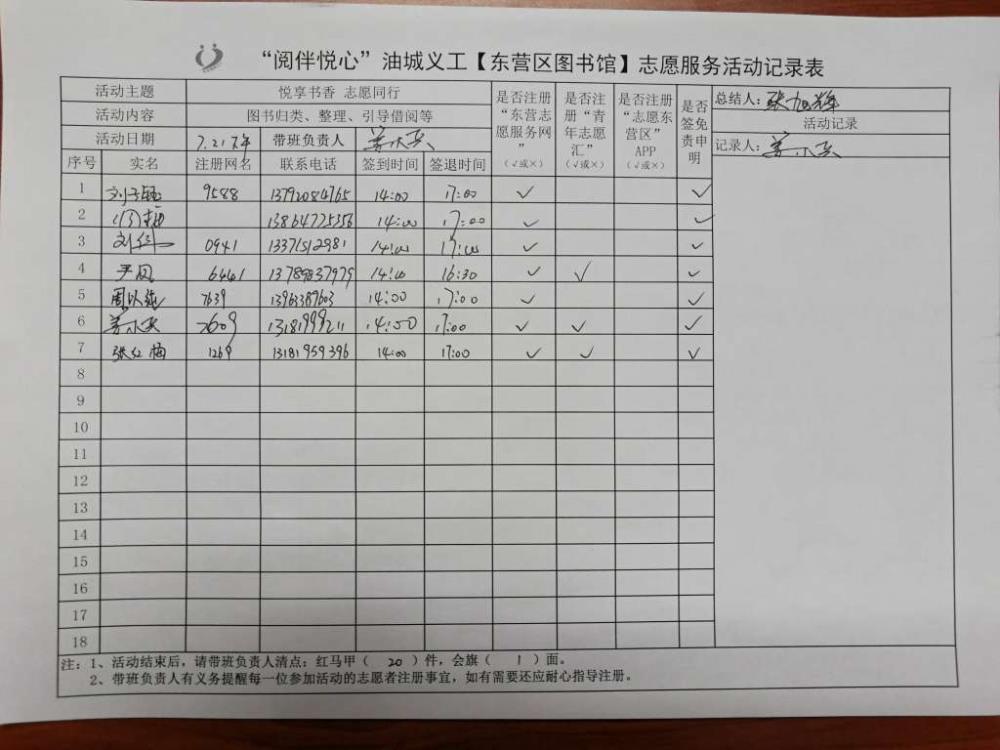 “阅伴悦心”油城义工【东营区图书馆】志愿服务活动记录表
活动主题 悦享书香 志愿同行 是否注册“东营志愿服务网” (√或×) 是否注册“青年志愿汇” (√或×) 是否注册“志愿东营区”APP (√或×) 是否签免责申明 总结人：张旭辉
活动内容 图书归类、整理、引导借阅等 活动记录
活动日期 带班负责人 记录人：
序号 实名 注册网名 联系电话 签到时间 签退时间
1 9588 13792084765 14:00 17:00 ✓ ✓
2 13864725356 14:00 17:00 ✓ ✓
3 0941 13371512981 14:00 17:00 ✓ ✓
4 6441 13789837979 14:00 16:30 ✓ ✓ ✓
5 7639 13963387603 14:00 17:00 ✓ ✓
6 7609 13181999211 14:00 17:00 ✓ ✓ ✓
7 张红梅 1269 13181959396 14:00 17:00 ✓ ✓ ✓
8
9
10
11
12
13
14
15
16
17
18
注：1、活动结束后，请带班负责人清点：红马甲（ 20 ）件，会旗（ 1 ）面。
2、带班负责人有义务提醒每一位参加活动的志愿者注册事宜，如有需要还应耐心指导注册。